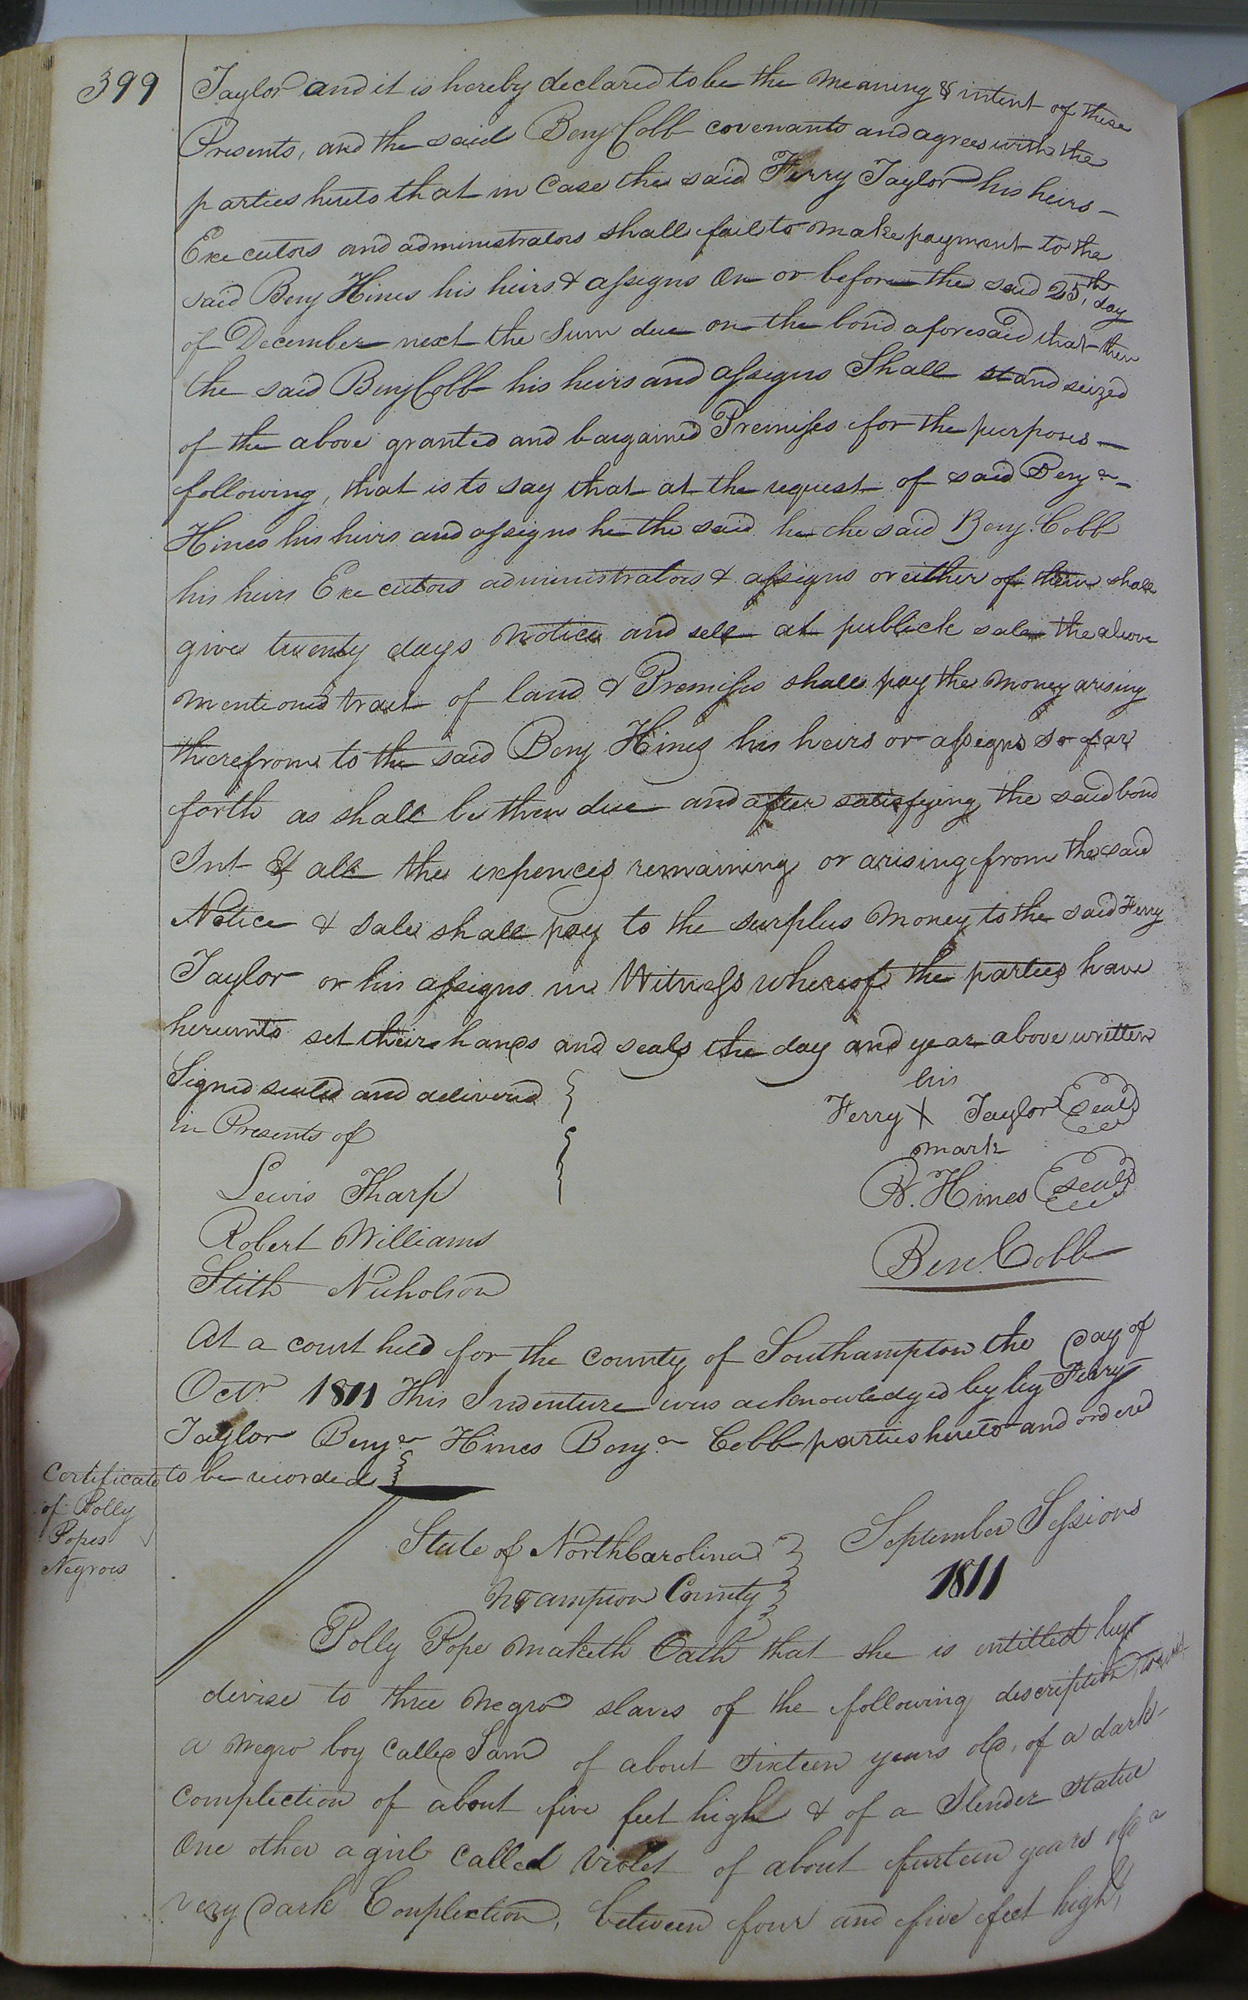 399
Taylor and it is hereby declared to be the meaning & intent of these
Presents, and the said Benj Cobb covenants and agrees with the
parties hereto that in Case the said Ferry Taylor his heirs
Executors and administrators shall fail to make payment to the
said Benj Hines his heirs & assigns On or before the said 25th day
of December next the Sum due on the bond aforesaid that then
the said Benj Cobb his heirs and assigns Shall stand seized
of the above granted and bargained Premises for the purposes
following, that is to say that at the request of said Benjn
Hines his heirs and assigns he the said he the said Benj. Cobb
his heirs Executors administrators & assigns or either of them shall
give twenty days Notice and sell at publick sale the above
mentioned tract of land & Premises shall pay the money arising
therefrom to the said Benj Hines his heirs or assigns so far
forth as shall be then due and after satisfying the said bond
Int & all the expences remaining or arising from the said
Notice & sale shall pay to the surplus money to the said Ferry
Taylor or his assigns in Witness whereof the parties have
hereunto set their hands and seals the day and year above written
Signed sealed and delivered
in Presents of
his
Ferry X Taylor Seal
mark
Lewis Tharp
B. Hines Seal
Robert Williams
Ben. Cobb
Stith Nicholson
At a court held for the county of Southampton the day of
Octr 1811 This Indenture was acknowledged by by Ferry
Taylor Benjn Hines Benjn Cobb parties hereto and ordered
to be recorded
Certificate
of Polly
Popes
Negroes
State of North Carolina September Sessions
Nhampton County 1811
Polly Pope maketh Oath that she is intitled by
devise to three negro slaves of the following description to wit
a negro boy called Sam of about sixteen years old, of a dark
complection of about five feet high & of a Slender Statue
One other a girl called Violet of about furteen years old a
very dark Conplection, between four and five feet high,